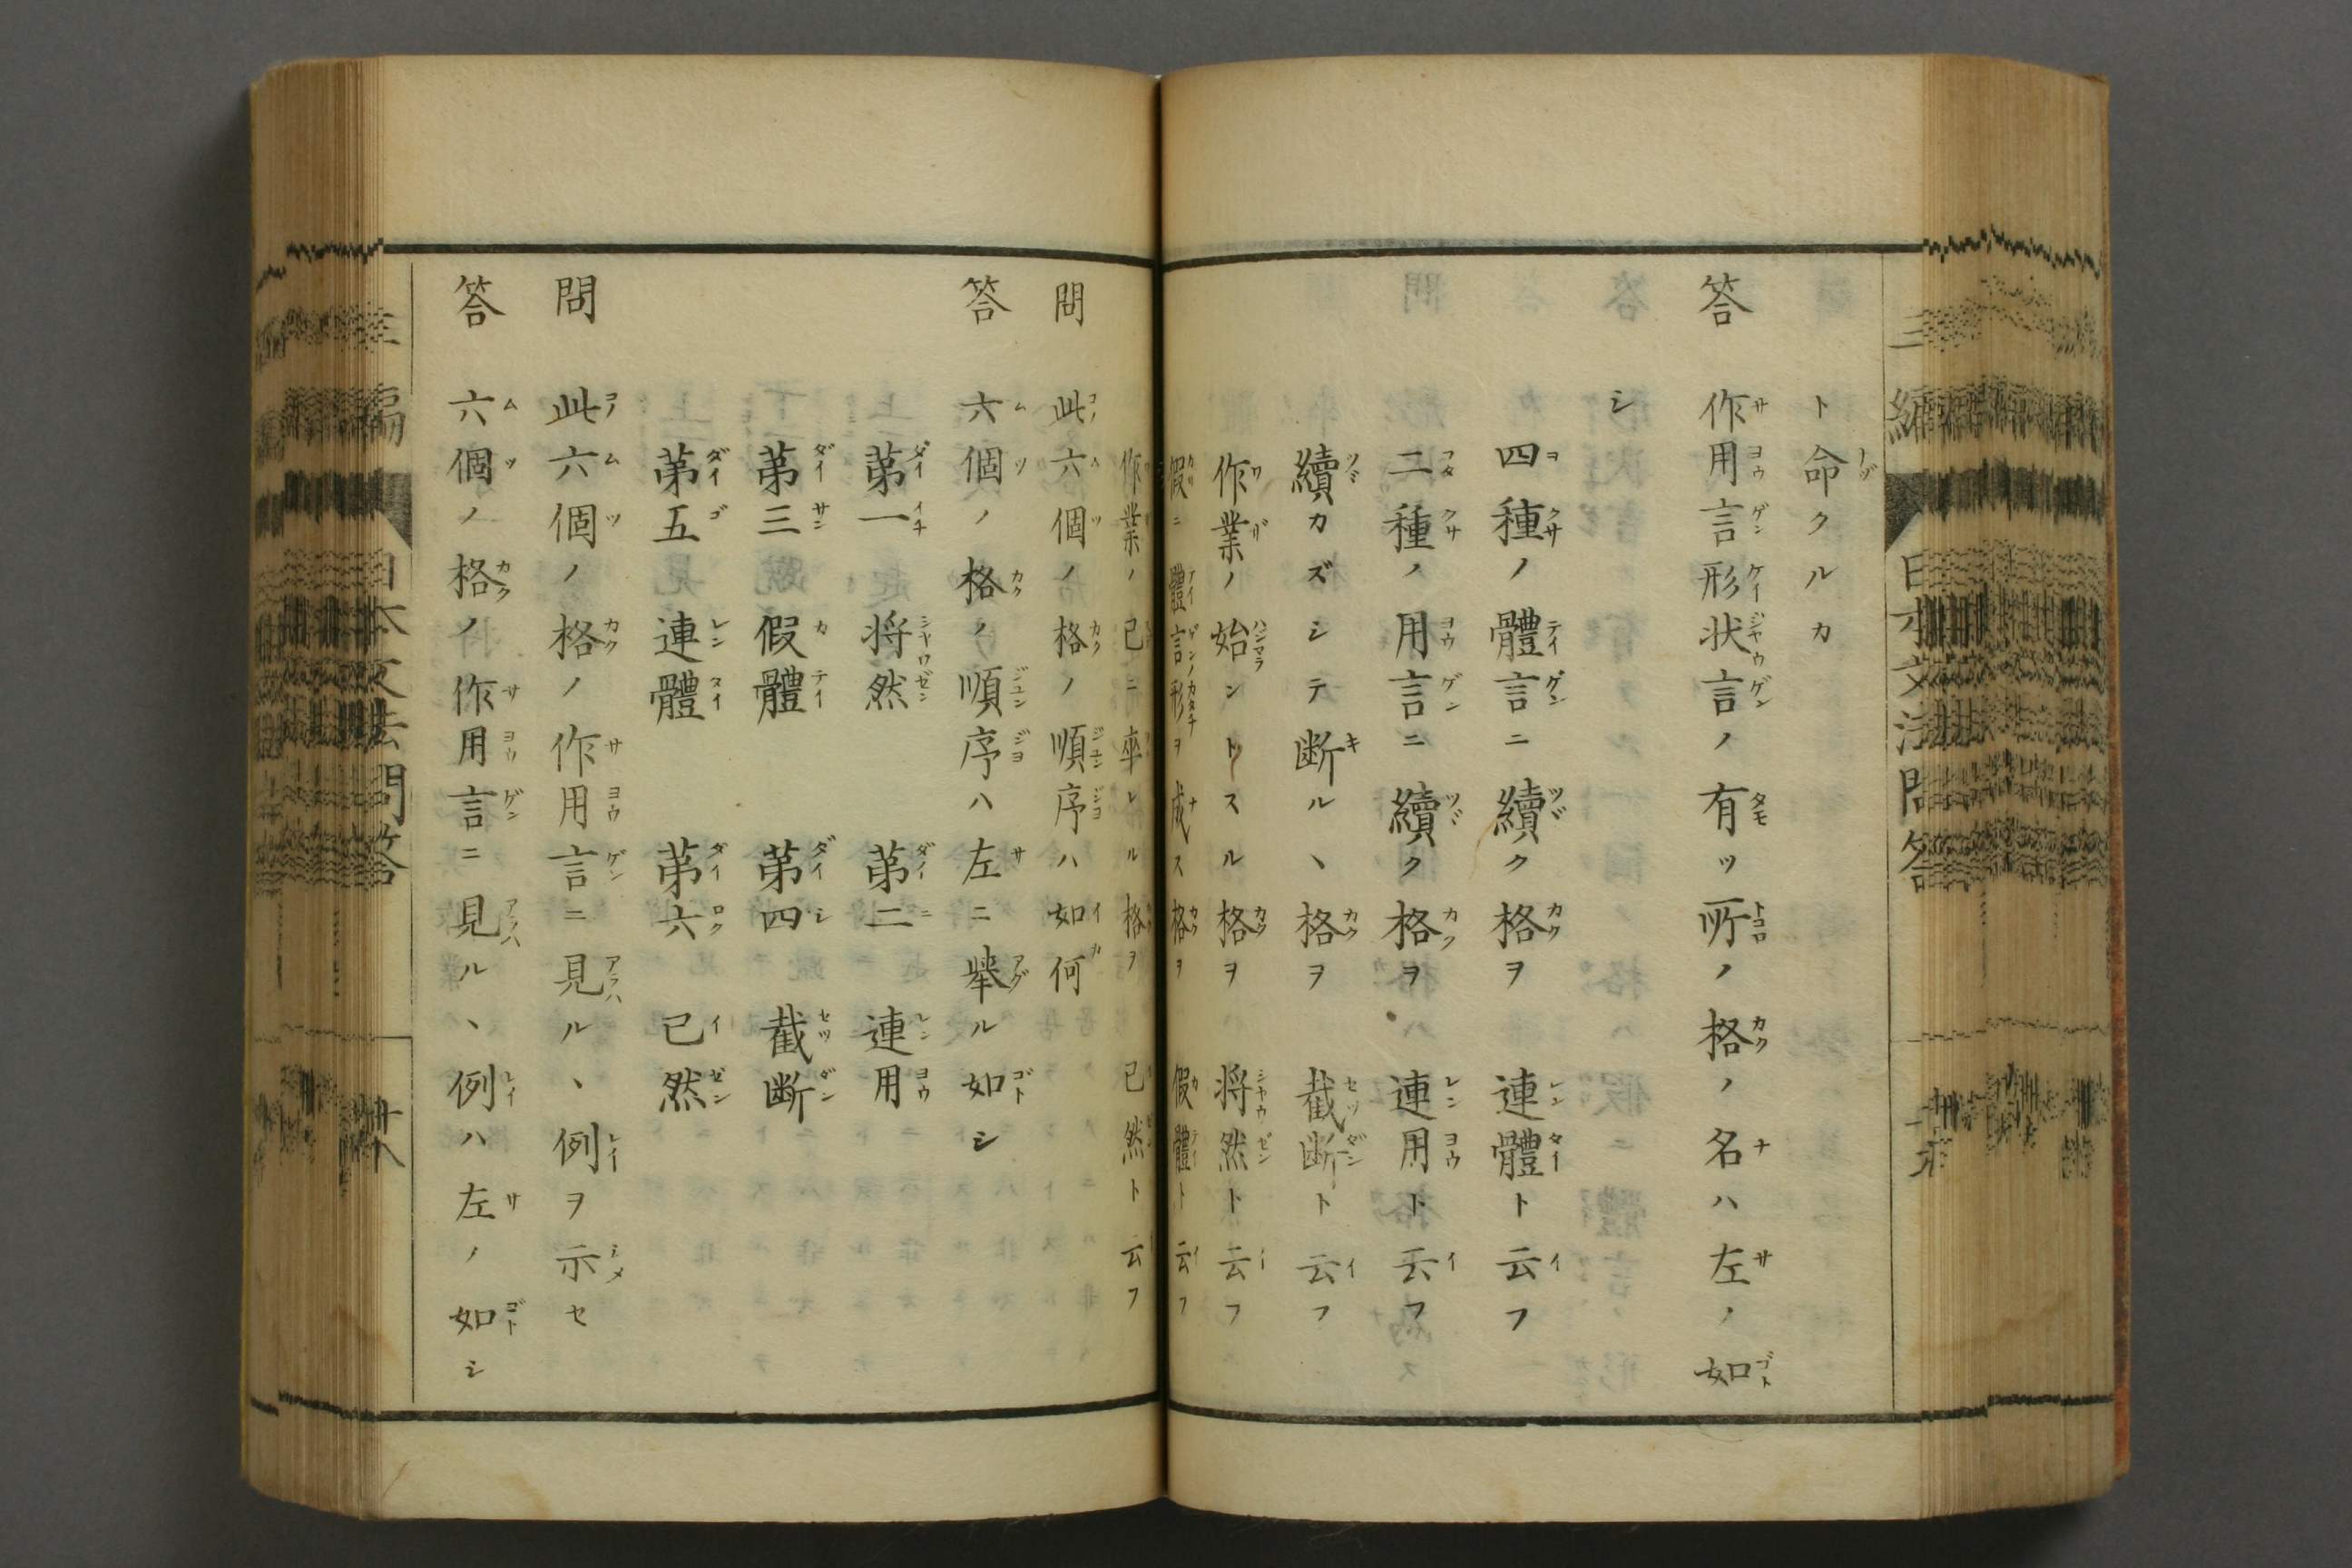 ト命クルカ
答 作用言形状言ノ有ツ所ノ格ノ名ハ左ノ如
シ
四種ノ體言ニ續ク格ヲ 連體ト云フ
二種ノ用言ニ續ク格ヲ 連用ト云フ
續カズシテ断ル丶格ヲ 截断ト云フ
作業ノ始ントスル格ヲ 将然ト云フ
假ニ體言ノ形ヲ成ス格ヲ 假體ト云フ
作業ノ已ニ卒レル格ヲ 已然ト云フ
問 此六個ノ格ノ順序ハ如何
答 六個ノ格ノ順序ハ左ニ擧ル如シ
第一 将然 第二 連用
第三 假體 第四 截断
第五 連體 第六 已然
問 此六個ノ格ノ作用言ニ見ル丶例ヲ示セ
答 六個ノ格ノ作用言ニ見ル丶例ハ左ノ如シ
日本文法問答